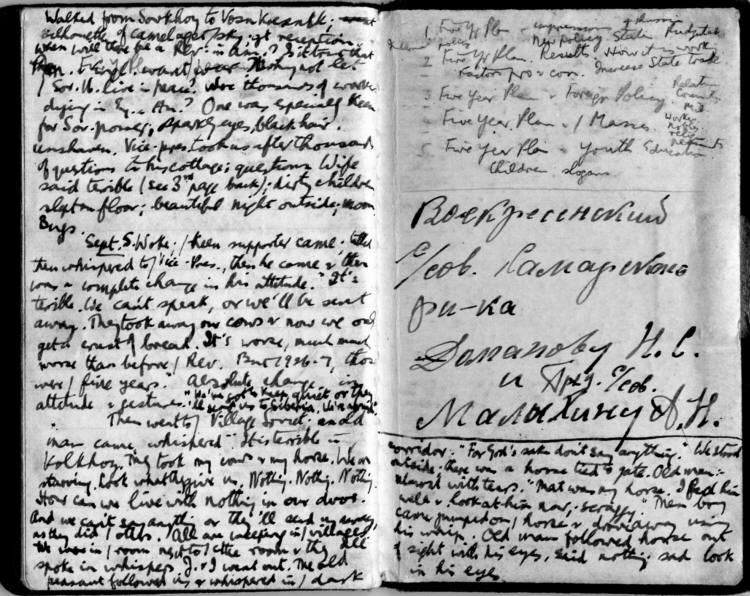 Walked from Sovkhoz to Voskresenskiy;
silhouette of camel against sky; gt reception
when will there be a Rev. in Am.? Is it true that
Pres. want war. They'll not let
/ Sov. U. live in peace. Were thousands of workers
dying in Eng. & Am.? One was especially keen
for Sov. power, sparkly eyes, black hair,
unshaven. Vice-pres. took us after thousands
of questions to his cottage; questions Wife
said terrible (see 3rd page back); dirty children
slept on floor; beautiful night outside; moon
Bugs.
Sept. 5. Woke; / keen supporter came. talked
then whispered to / Vice-Pres., then he came & there
was a complete change in his attitude. "It's
terible. We can't speak, or we'll be sent
away. They took away our cows & now we only
get a crust of bread. It's worse, much much
worse than before / Rev. But 1926-7, those
were / fine years. Absolute change in
attitude & gestures. "We've got to keep quiet or they
'll send us to Siberia. We're afraid"
Then went to / Village Soviet; an old
man came, whispered "It is terible in
Kolkhoz. They took my cows & my horse. We are
starving. Look what they give us, Nothing. Nothing. Nothing
How can we live with nothing in our dvor.
And we can't say anything or they'll send us away
as they did / others. All are weeping in / villages
We were in / room next to / little room & they all
spoke in whispers J. & I went out. The old
peasant followed us & whispered in / dark
1 Five Yr Plan - impressions of Russia
New policy State Budget
2 Five Yr Plan. Results How it is work
Factors pro & con. Increase State trade
3 Five Year Plan & Foreign Policy
4 Five Year Plan & / Masses
Workers
5 Five Year Plan & Youth Education
Children slogans
Воскресенский
с/сов. Самарского
ри-ка
Н. С.
и Пред. с/сов.
Малахину А.Н.
corridor: "For God's sake don't say anything." We stood
outside. there was a horse tied to gate. Old man:-
almost with tears. "That was my horse. I fed him
well & look at him now, scraggy." Then boy
came jumped on / horse & drove away using
his whip. Old man followed horse out
of sight with his eyes, said nothing sad look
in his eyes